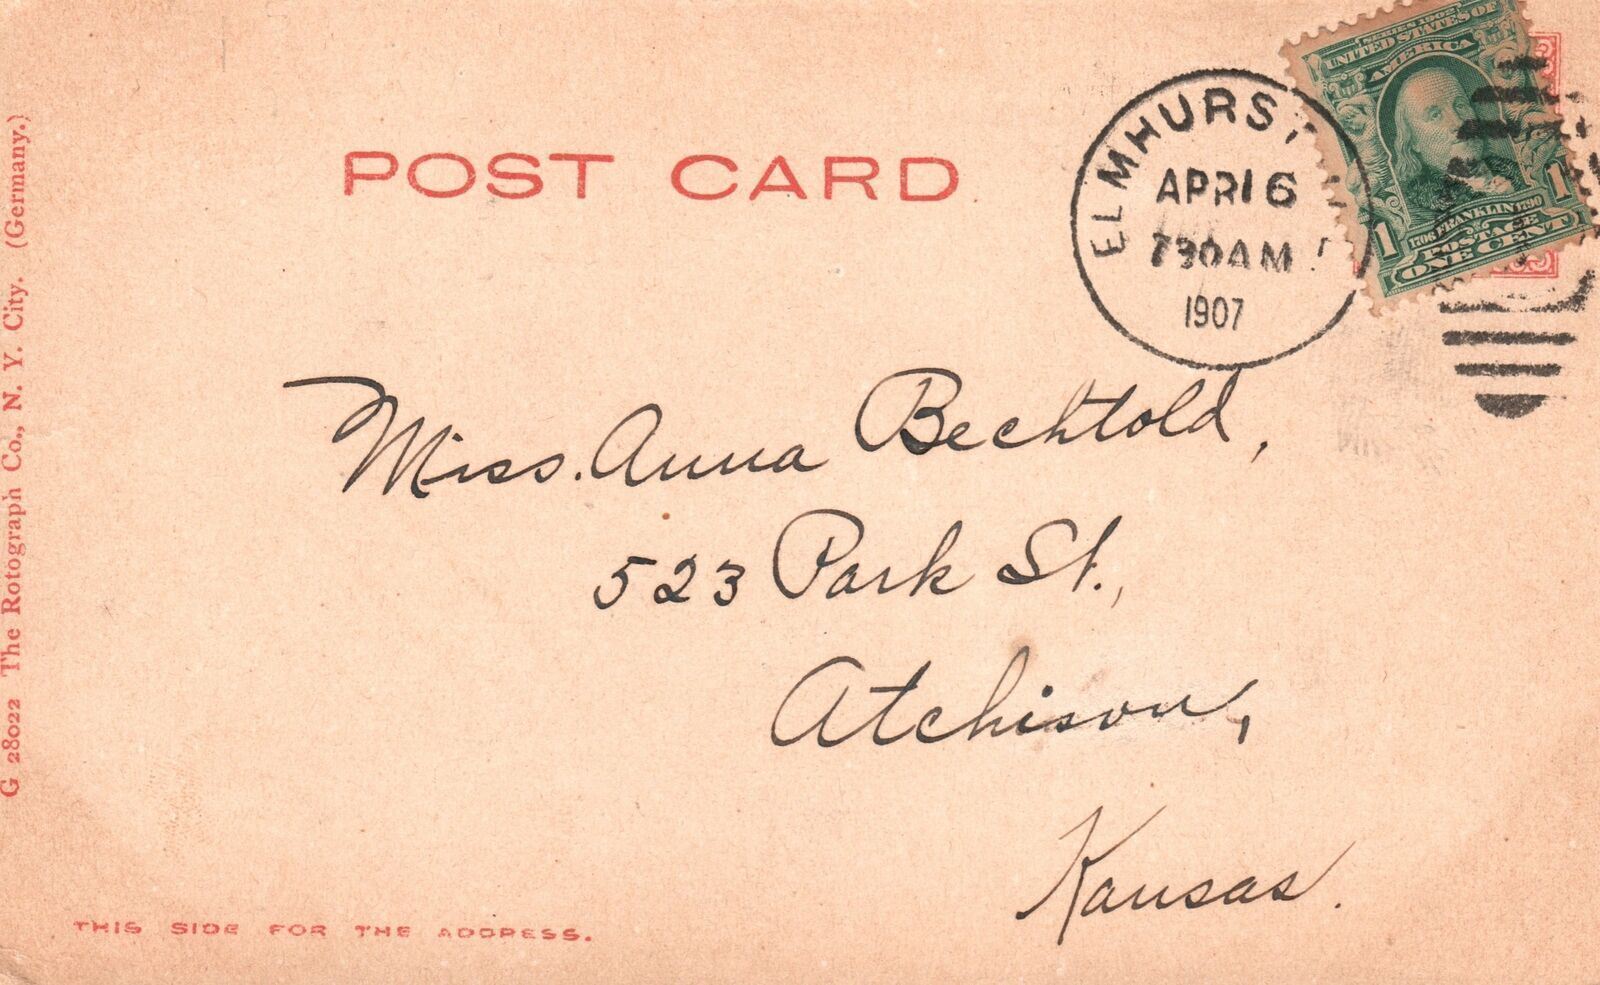 POST CARD
ELMHURST
APR 16
730AM
1907
SERIES 1902
UNITED STATES OF
AMERICA
1706 FRANKLIN 1790
1 POSTAGE 1
ONE CENT
Miss. Anna Bechtold,
523 Park St.,
Atchison,
Kansas.
THIS SIDE FOR THE ADDRESS.
G 28022 The Rotograph Co., N. Y. City. (Germany.)